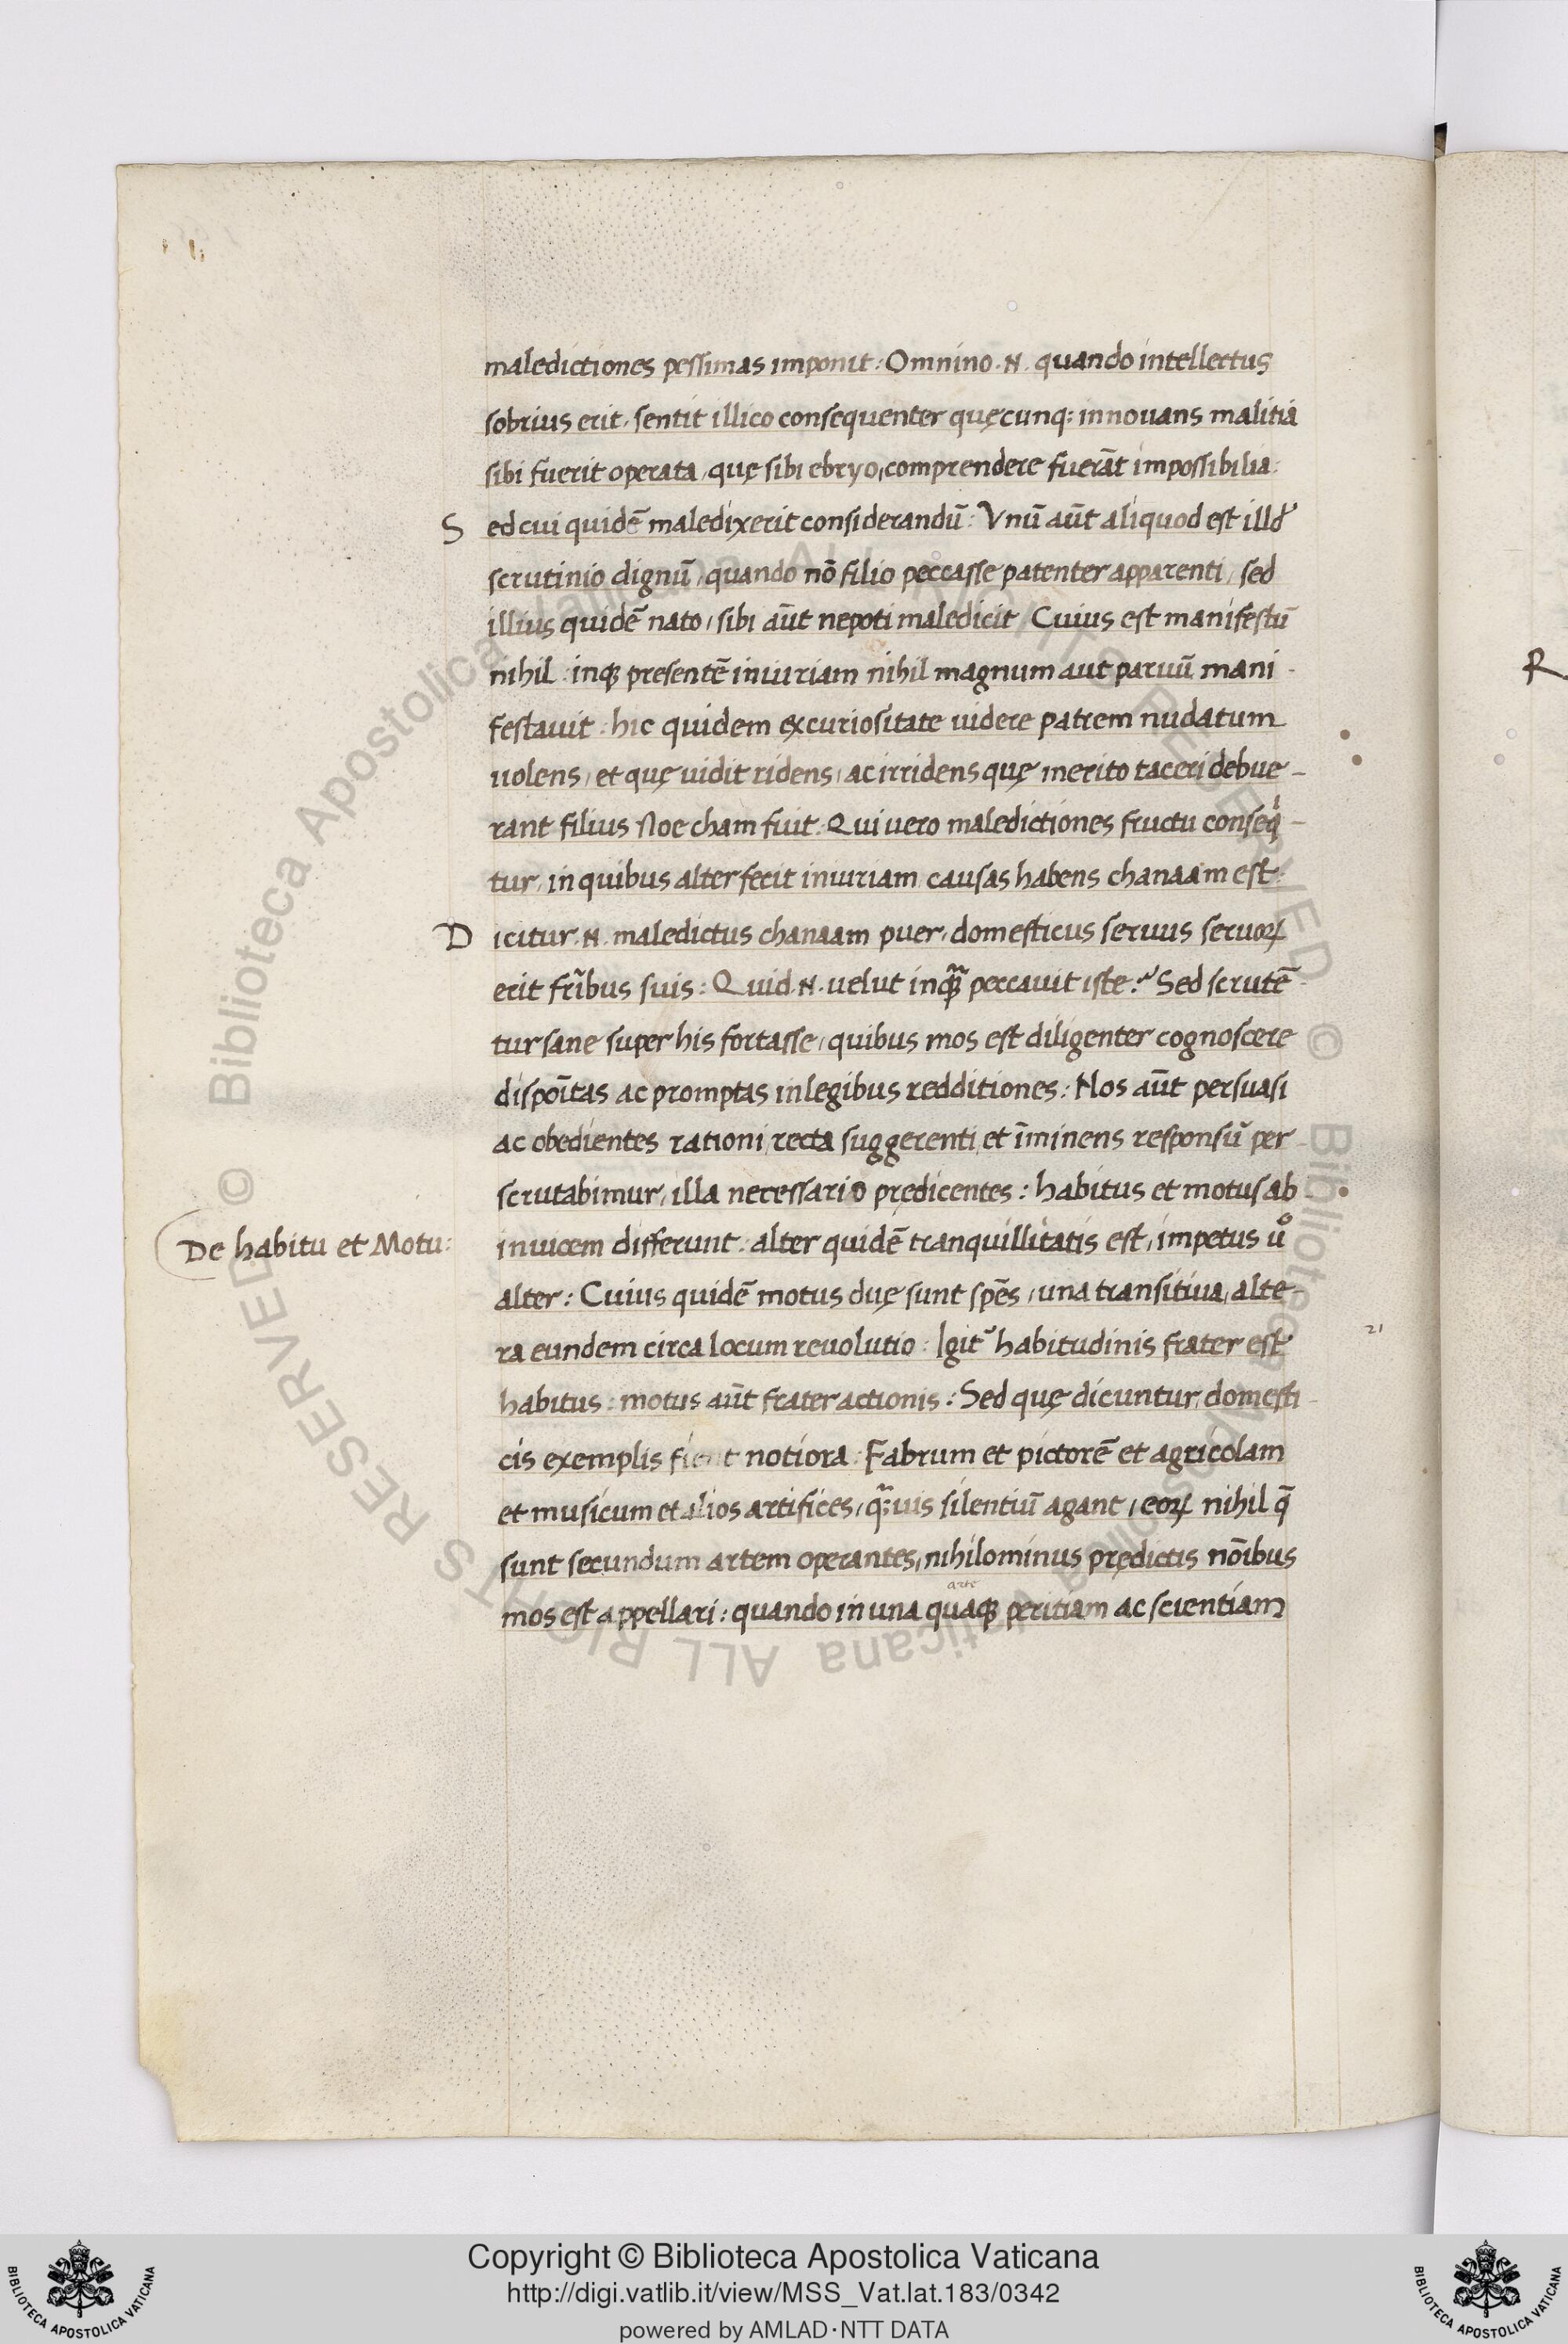 maledictiones pessimas imponit: Omnino .N. quando intellectus
sobrius erit, sentit illico consequenter quęcunq: innouans malitiā
sibi fuerit operata, quę sibi ebryo, comprendere fuerāt impossibilia:
S ed cui quidē maledixerit considerandū: Vnū aūt aliquod est illd
scrutinio dignū, quando nō filio peccasse patenter apparenti, sed
illius quidē nato, sibi aūt nepoti maledicit Cuius est manifestū
nihil: inqꝫ presentē iniuriam nihil magnum aut paruū mani-
festauit: hic quidem ex curiositate uidere patrem nudatum
uolens, et quę uidit ridens, ac irridens quę merito taceri debue-
rant filius Noe cham fuit: Qui uero maledictiones fructu conseq̇-
tur, in quibus alter fecit iniuriam causas habens chanaam est:
D icitur .N. maledictus chanaam puer, domesticus seruus seruoꝝ
erit fr̄ibus suis: Quid .N. uelut inquā peccauit iste? Sed scrutē-
tur sane super his fortasse, quibus mos est diligenter cognoscere
dispoītas ac promptas in legibus redditiones: Nos aūt persuasi
ac obedientes rationi recta suggerenti, et īminens responsū per-
scrutabimur, illa necessario prędicentes: habitus et motus ab
De habitu et Motu:
inuicem differunt: alter quidē tranquillitatis est, impetus uº
alter: Cuius quidē motus duę sunt spēs, una transitiua, alte-
ra eundem circa locum reuolutio: Igit᷑ habitudinis frater est
21
habitus: motus aūt frater actionis: Sed quę dicuntur, domesti-
cis exemplis fient notiora: Fabrum et pictorē et agricolam
et musicum et alios artifices, q̄uis silentiū agant, eoꝝ nihil q̄
sunt secundum artem operantes, nihilominus prędictis nōibus
arte
mos est appellari: quando in una quaqꝫ peritiam ac scientiam
R
© Biblioteca Apostolica Vaticana ALL RIGHTS RESERVED
© Biblioteca Apostolica Vaticana ALL RIGHTS RESERVED
Copyright © Biblioteca Apostolica Vaticana
http://digi.vatlib.it/view/MSS_Vat.lat.183/0342
powered by AMLAD·NTT DATA
BIBLIOTECA APOSTOLICA VATICANA
BIBLIOTECA APOSTOLICA VATICANA